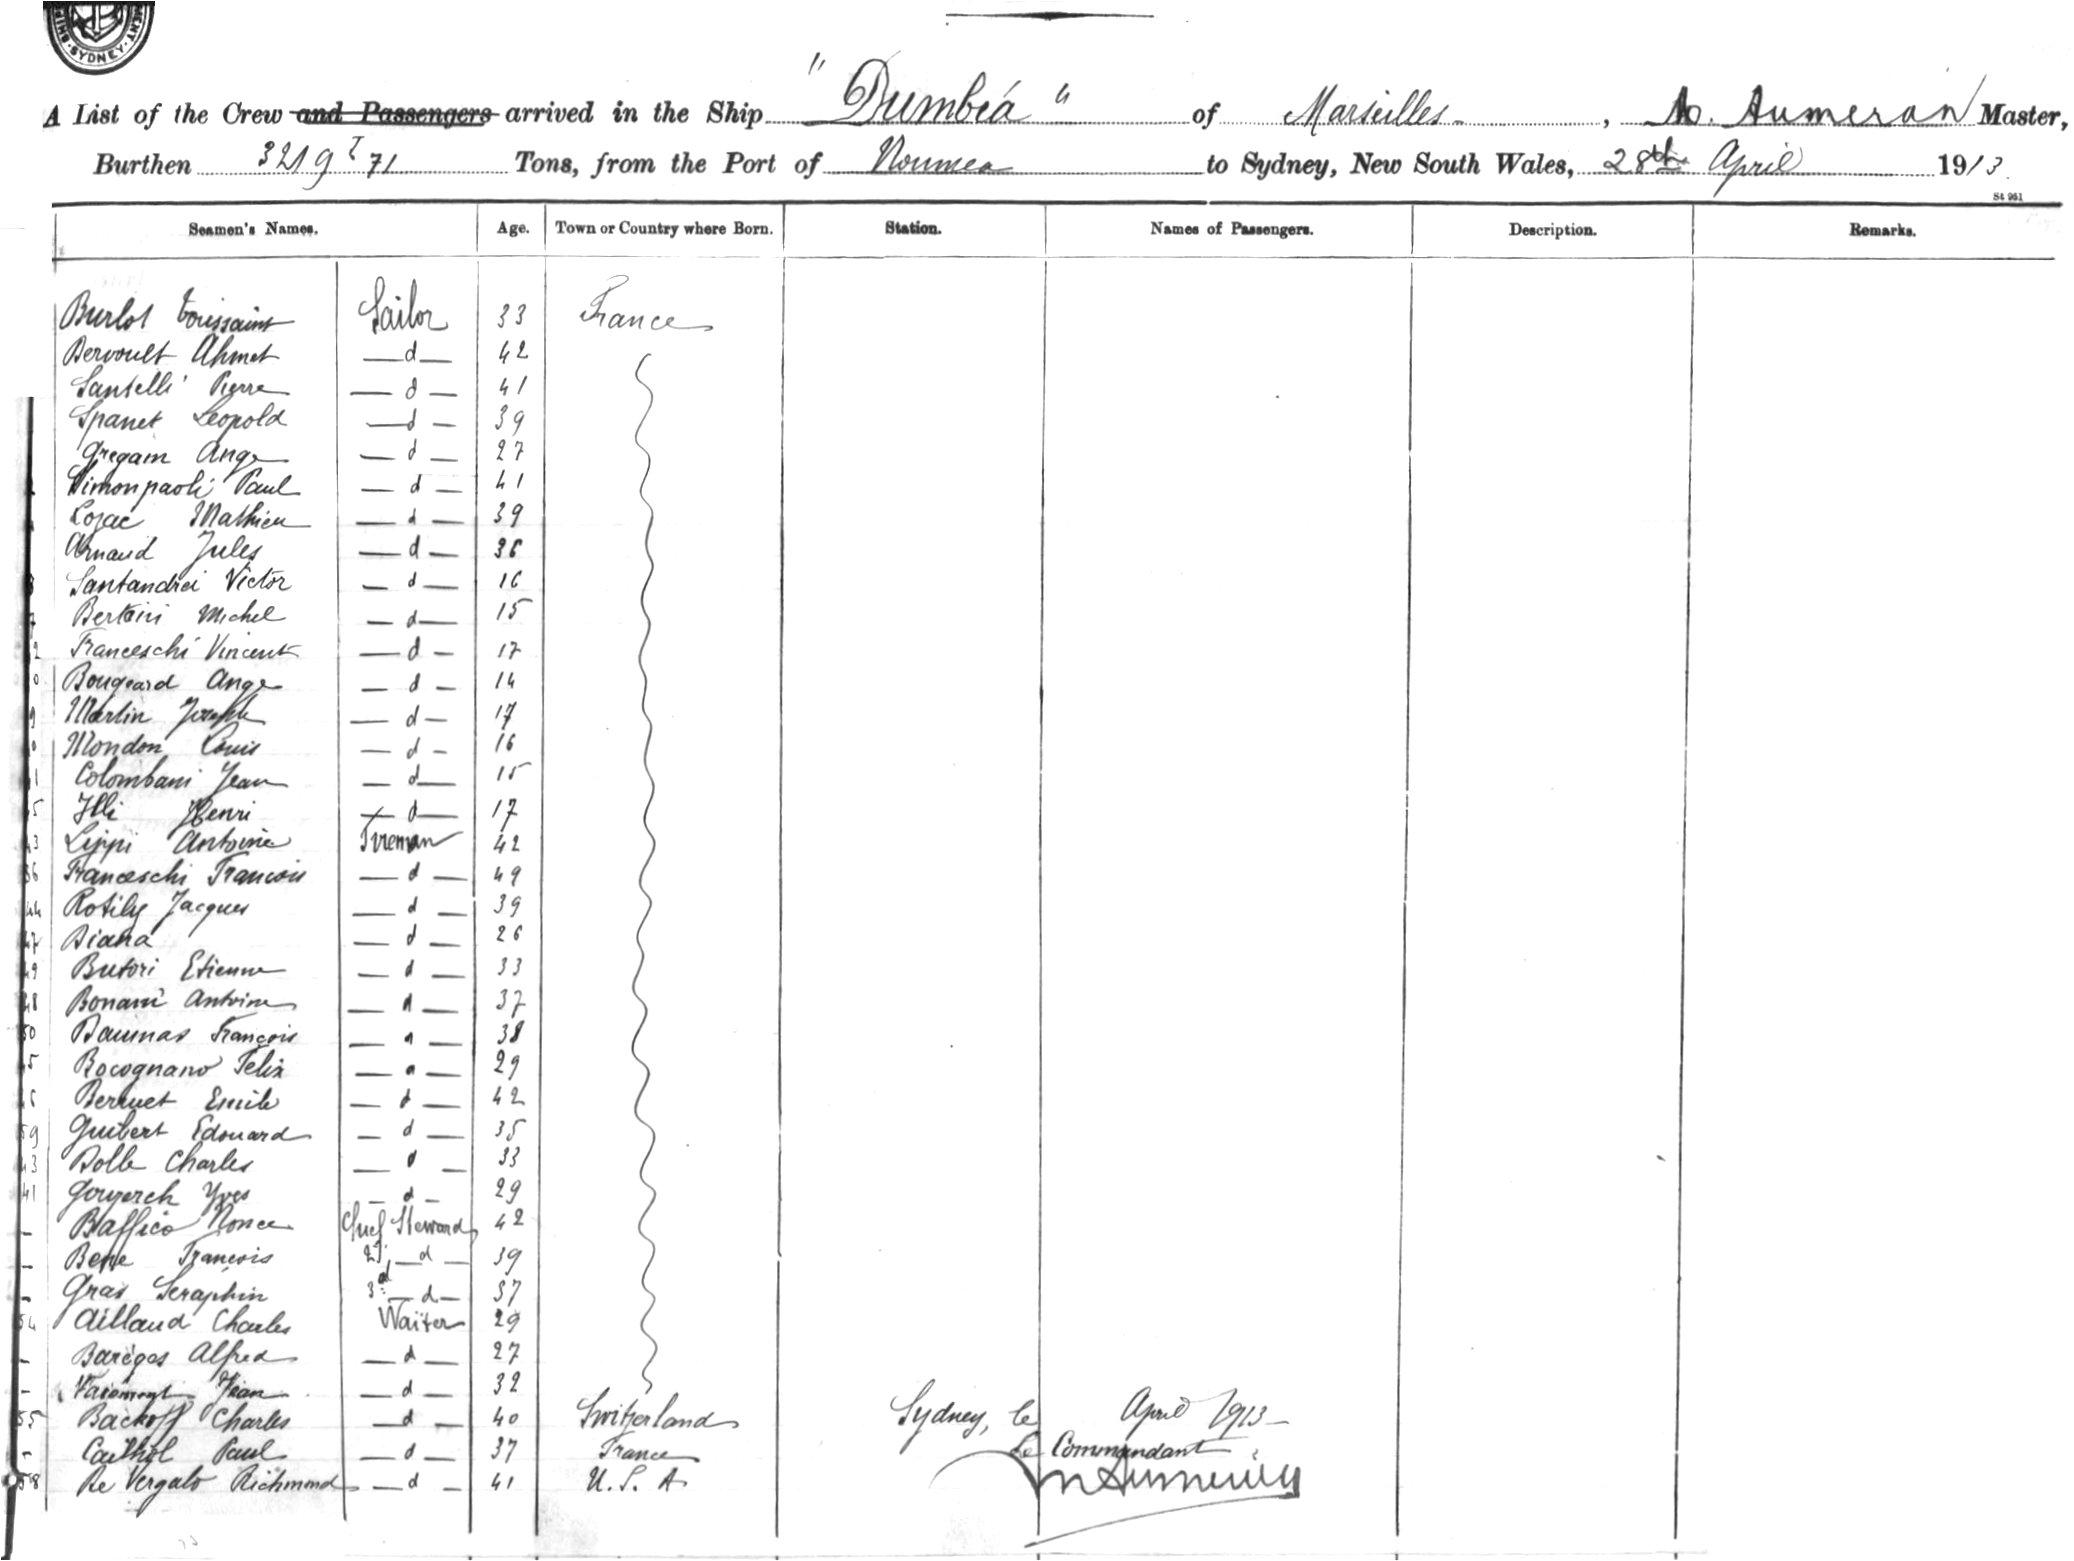 SYDNEY
A List of the Crew and Passengers arrived in the Ship "Dumbéa" of Marseilles, M. Aumeran Master,
Burthen 3219 T 71 Tons, from the Port of Noumea to Sydney, New South Wales, 28th April 1913.
St 951
Seamen's Names. Age. Town or Country where Born. Station. Names of Passengers. Description. Remarks.
Burlot Toussaint Sailor 33 France
Bervoult Ahmet — d — 42
Santelli Pierre — d — 41
Spanet Leopold — d — 39
Gregam Ange — d — 27
Simonpaoli Paul — d — 41
Lozac Mathieu — d — 39
Arnaud Jules — d — 36
Santandrei Victor — d — 16
Bertoiri Michel — d — 15
Franceschi Vincent — d — 17
Bougeard Ange — d — 14
Martin Joseph — d — 17
Mondon Louis — d — 16
Colombani Jean — d — 15
Illi Henri — d — 17
Lippi Antoine Fireman 42
Franceschi Francois — d — 49
44 Rotily Jacques — d — 39
47 Diana — d — 26
49 Butori Etienne — d — 33
48 Bonani Antoine — d — 37
50 Daumas François — d — 38
Bocognano Felix — d — 29
Berruet Emile — d — 42
59 Guibert Edouard — d — 35
43 Dolle Charles — d — 33
41 Gouyerch Yves — d — 29
- Baffico Nonce Chief Steward 42
- Bene François 2d — d — 39
- Gras Seraphin 3rd — d — 37
54 Aillaud Charles Waiter 29
- Barèges Alfred — d — 27
- Jean — d — 32
55 Backoff Charles — d — 40 Switzerland Sydney, le April 1913
- Cathol Paul — d — 37 France Le Commandant
58 De Vergalo Richmond — d — 41 U.S.A. M Aumeran